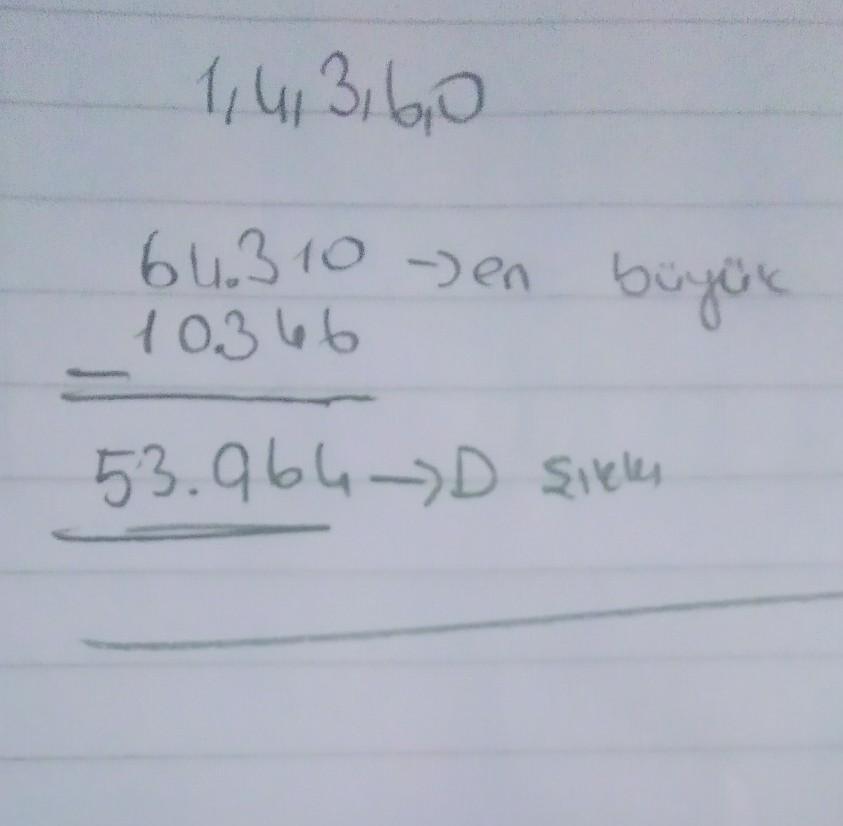 1,4,3,6,0
64.310 → en büyük
10.346
—
53.964 → D şıkkı